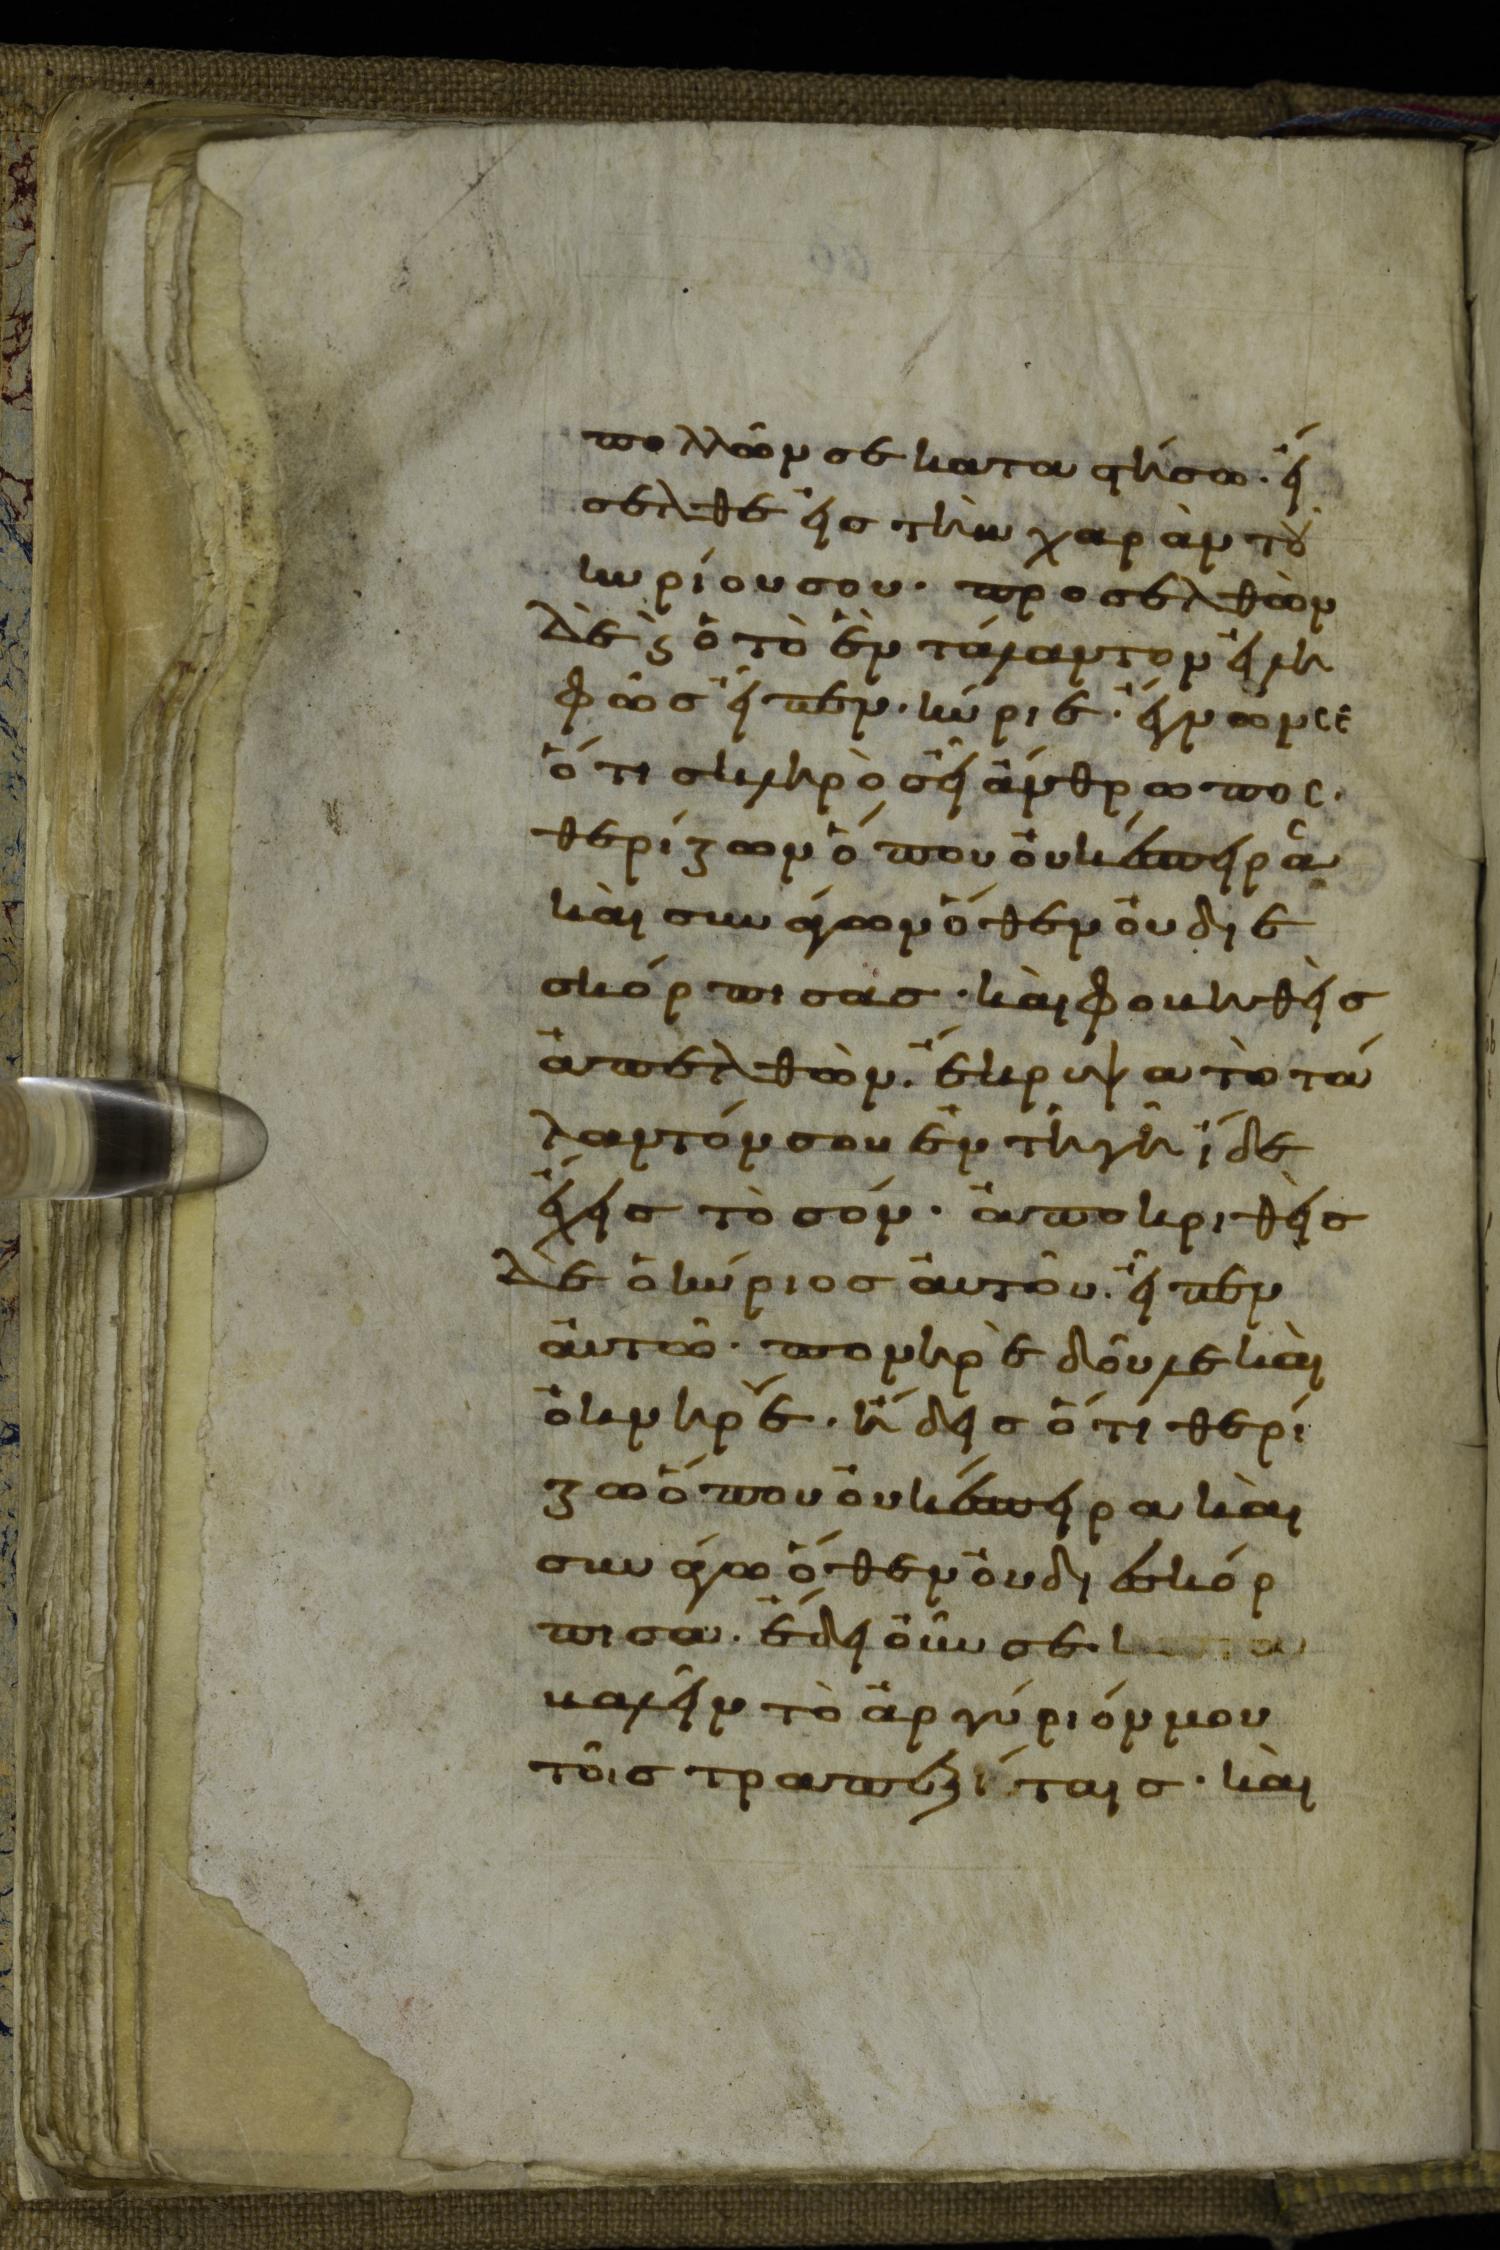 πολλῶν σε καταστήσω· εἴ
σελθε εἰς τὴν χαρὰν τοῦ
κυρίου σου· προσελθὼν
δὲ ϗ ὁ τὸ ἓν τάλαντον εἰλη
φὼς εἶπεν· κύριε· ἔγνων σε
ὅτι σκληρὸς εἶ ἄνθρωπος·
θερίζων ὅπου οὐκ ἔσπειρας
καὶ συνάγων ὅθεν οὐ διε
σκόρπισας· καὶ φοβηθεὶς
ἀπελθὼν· ἔκρυψα τὸ τά
λαντόν σου ἐν τῇ γῇ ἴδε
ἔχεις τὸ σόν· ἀποκριθεὶς
δὲ ὁ κύριος αὐτοῦ· εἶπεν
αὐτῶ· πονηρὲ δοῦλε καὶ
ὀκνηρέ· ἤδεις ὅτι θερί
ζω ὅπου οὐκ ἔσπειρα καὶ
συνάγω ὅθεν οὐ διεσκόρ
πισα· ἔδει οὖν σε·
βαλεῖν τὸ ἀργύριόν μου
τοῖς τραπεζίταις· καὶ